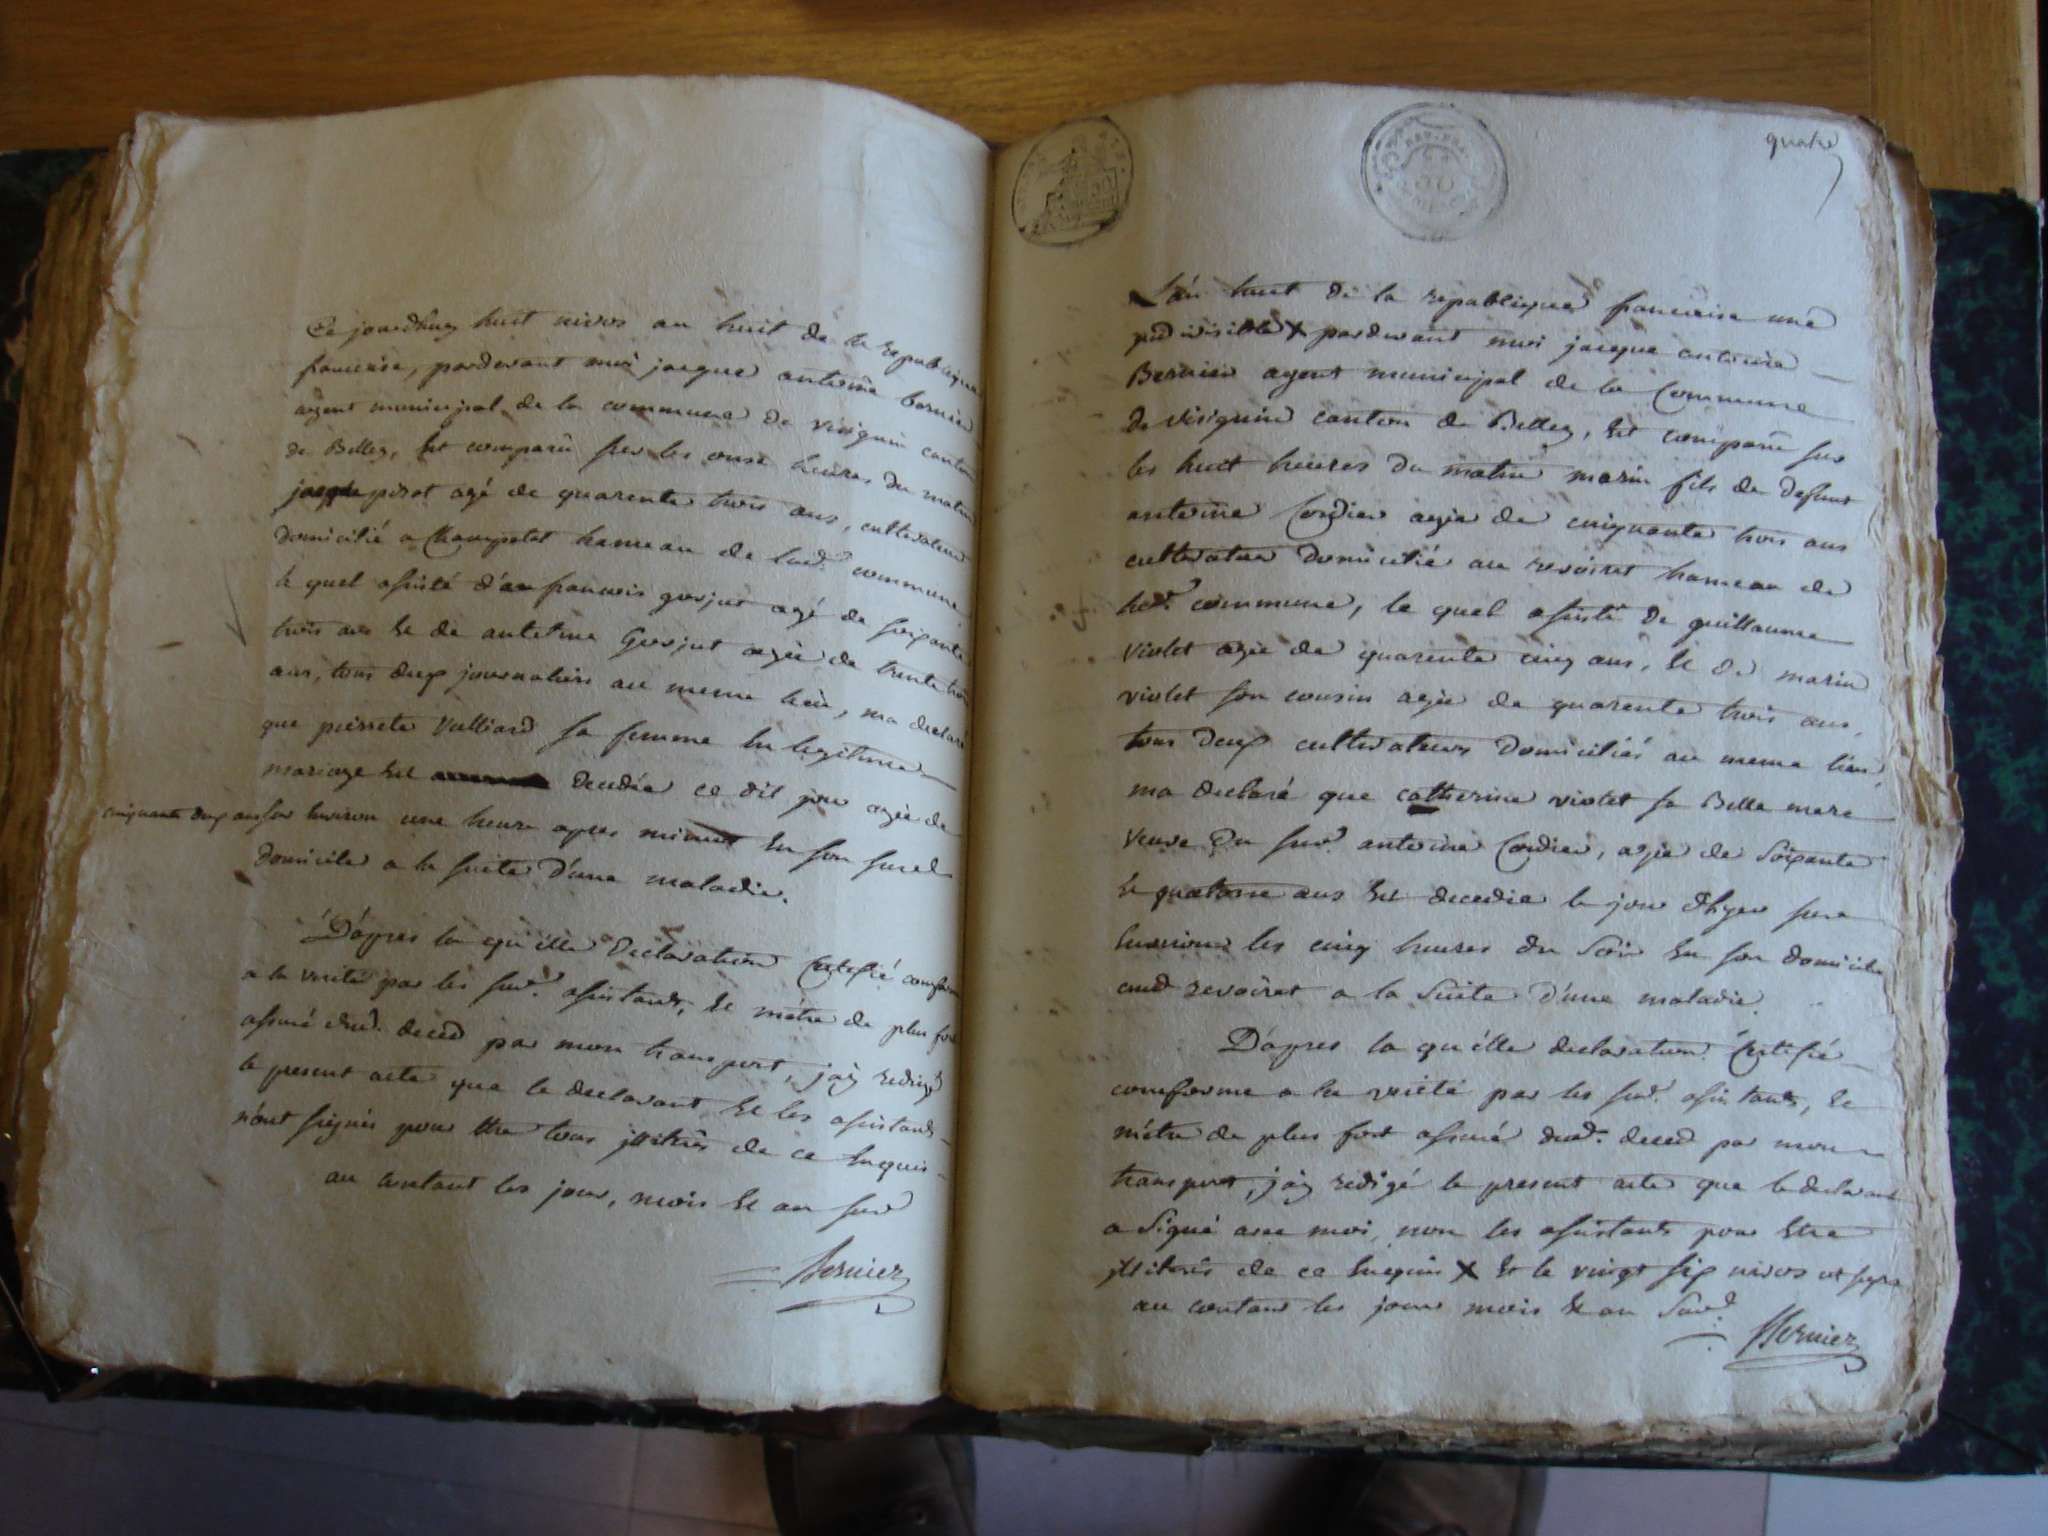 Ce jourdhuy huit nivos an huit de la republique
francaise, pardevant moi jacque antoine bernier
agent municipal de la commune de virignin canton
de Belley, Est comparu sur les onse heures du matin
jacque pirot agé de quarente trois ans, cultivateur
domicilié a Champetel hameau de lad. commune
le quel assisté d'an francois gosjut agé de soixante
trois ans Et de antetme Gosjut agée de trente trois
ans, tous deux journaliers au meme lieu, ma declaré
que pierrete Vulliard sa femme En legitime
mariage Est decedée ce dit jour agée de
cinquante deux ans sur Environ une heure apres minuit En son susd
domicile a la suite d'une maladie.
D'apres la qu'elle Declaration Certifié conforme
a la verité par les susd. assistants, Et m'étre de plus fort
assuré dud. deced par mon transport, j'ay redigé
le present acte que le declarant Et les assistants
n'ont signés pour Etre tous illitérés de ce Enquis
au contant les jour, mois Et an susd
Bernier
quatre
L'an huit de la republique francaise une
indivisible X pardevant moi jacque antoine
Bernier agent municipal de la Commune
de virignin canton de Belley, Est comparu sur
les huit heures du matin marin fils de defunt
antoine Cordier agée de cinquante trois ans
cultivateur domicilié au revoiret hameau de
lad. commune, le quel assisté de guillaume
violet agée de quarente cinq ans, Et de marin
violet son cousin agée de quarente trois ans
tous deux cultivateurs domiciliés au meme lieu
ma declaré que catherine violet sa Belle mere
veuve du susd antoine Cordier, agée de soixante
Et quatorse ans Est decedée le jour d'hyer sur
Environ les cinq heures du soir En son domicile
aud revoiret a la suite d'une maladie.
D'apres la qu'elle declaration Certifié
comforme a la verité par les susd. assistants, Et
m'étre de plus fort assuré dud. deced par mon
transport, j'ay redigé le present acte que le declarant
a signé avec moi, non les assistants pour Etre
illiterés de ce Enquis X Et le vingt six nivos ut supra
au contant les jour mois Et an susd.
Bernier